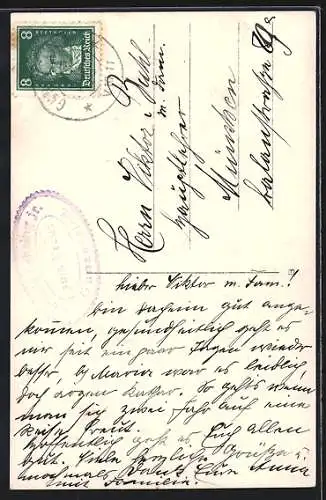 BEETHOVEN
8 Deutsches Reich 8
Herrn Viktor Buhl
m. Fam.
Hauptlehrer
München
lieber Viktor m. Fam.!
bin daheim gut ange-
kommen, gesundheitlich geht es
mir seit ein paar Tagen wieder
besser, bei war es leiblich
doch wegen So gehts wenn
man sich zwei Jahr auf eine
Reise freut.
Hoffentlich geht es Euch allen
gut. Viele herzliche Grüße u.
nochmals Dank Eure Anna
mit Familie.